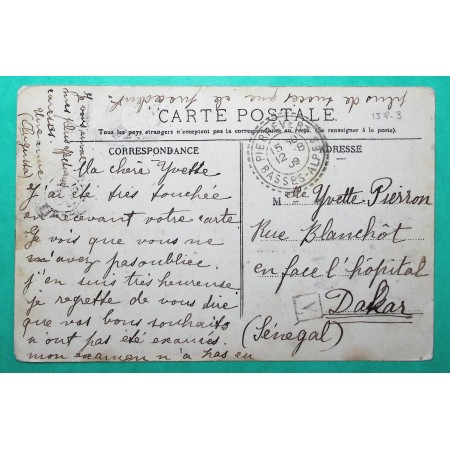 plus de succès que le précédent.
158-3
CARTE POSTALE
Tous les pays étrangers n'acceptent pas la correspondance au recto. (Se renseigner à la poste).
CORRESPONDANCE
ADRESSE
Ma chère Yvette
J'ai été très touchée
en recevant votre carte
Je vois que vous ne
m'avez pas oubliée.
j'en suis très heureuse.
je regrette de vous dire
que vos bons souhaits
n'ont pas été exaucés.
mon examen n'a pas eu
Je vous envoie
mes plus
caresses.
Une amie
M elle Yvette Pierron
Rue Blanchôt
en face l'hôpital
Dakar
(Sénégal)
PIERREVERT
15
12
09
BASSES-ALPES